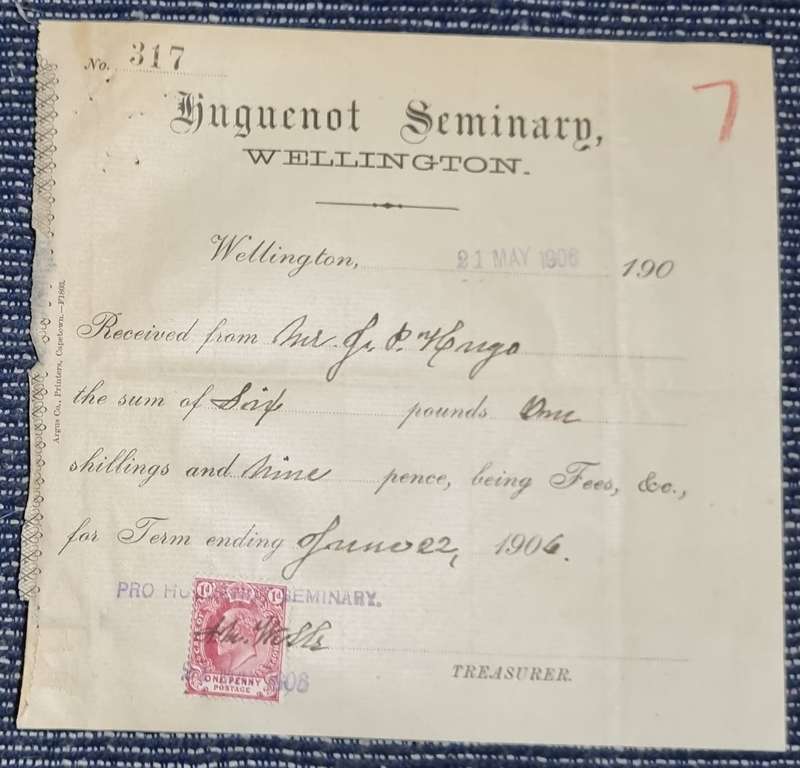 No. 317
7
Huguenot Seminary,
WELLINGTON.
Wellington, 21 MAY 1906 190
Received from Mr. J. P. Hugo
the sum of Six pounds One
shillings and Nine pence, being Fees, &c.,
for Term ending June 22, 1906.
PRO HU SEMINARY.
1d 1d
ONE PENNY
POSTAGE
TREASURER.
Argus Co., Printers, Capetown.—F1803.